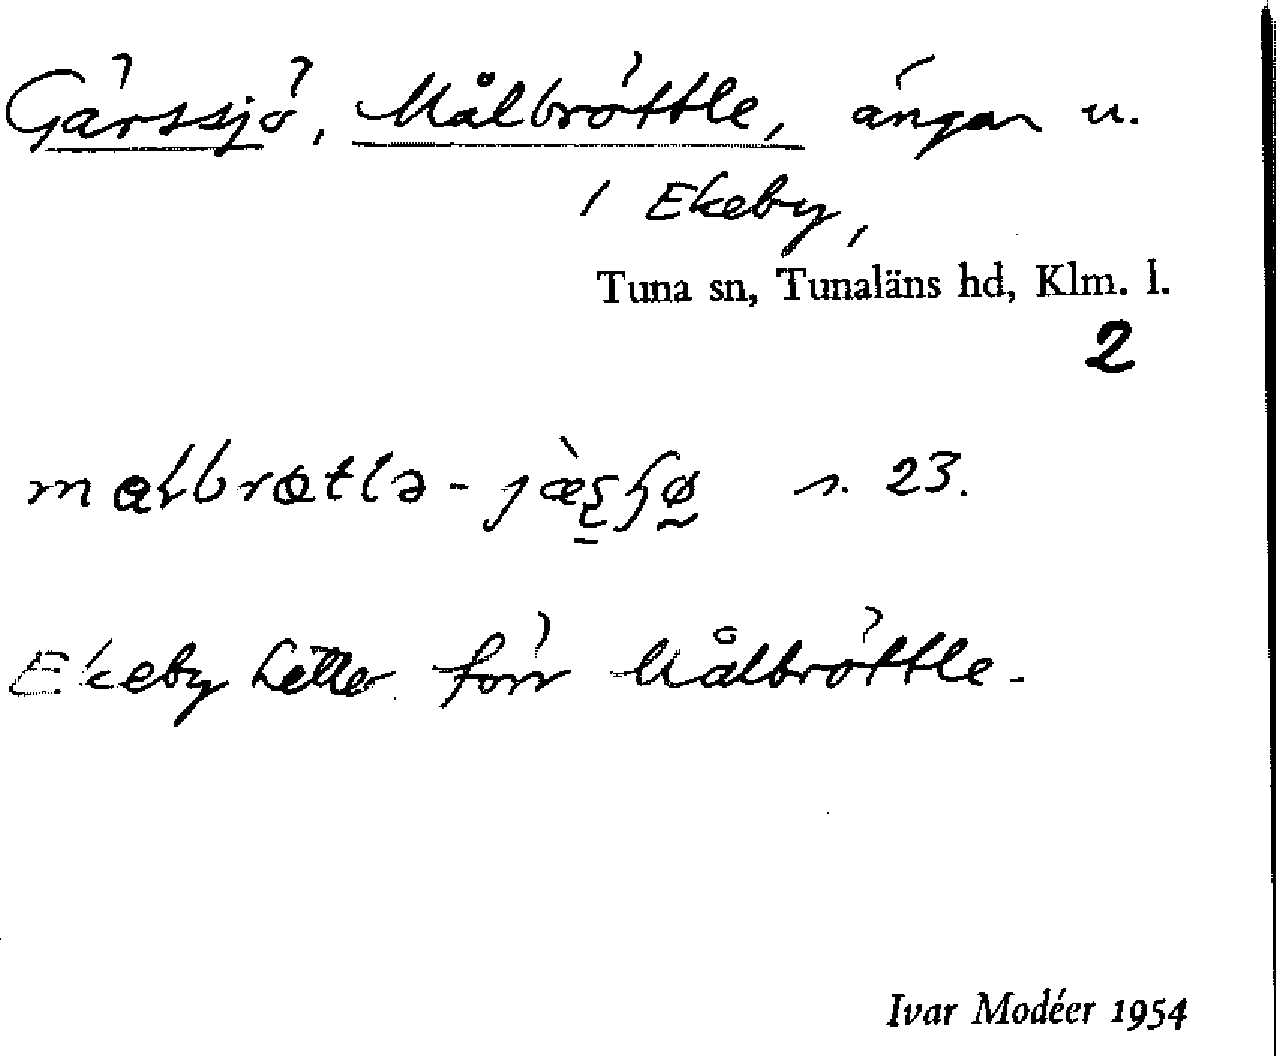 Gärssjö, Målbröttle, ängar u.
i Ekeby,
Tuna sn, Tunaläns hd, Klm. l.
2
s. 23.
Ekeby hette förr Målbröttle.
Ivar Modéer 1954